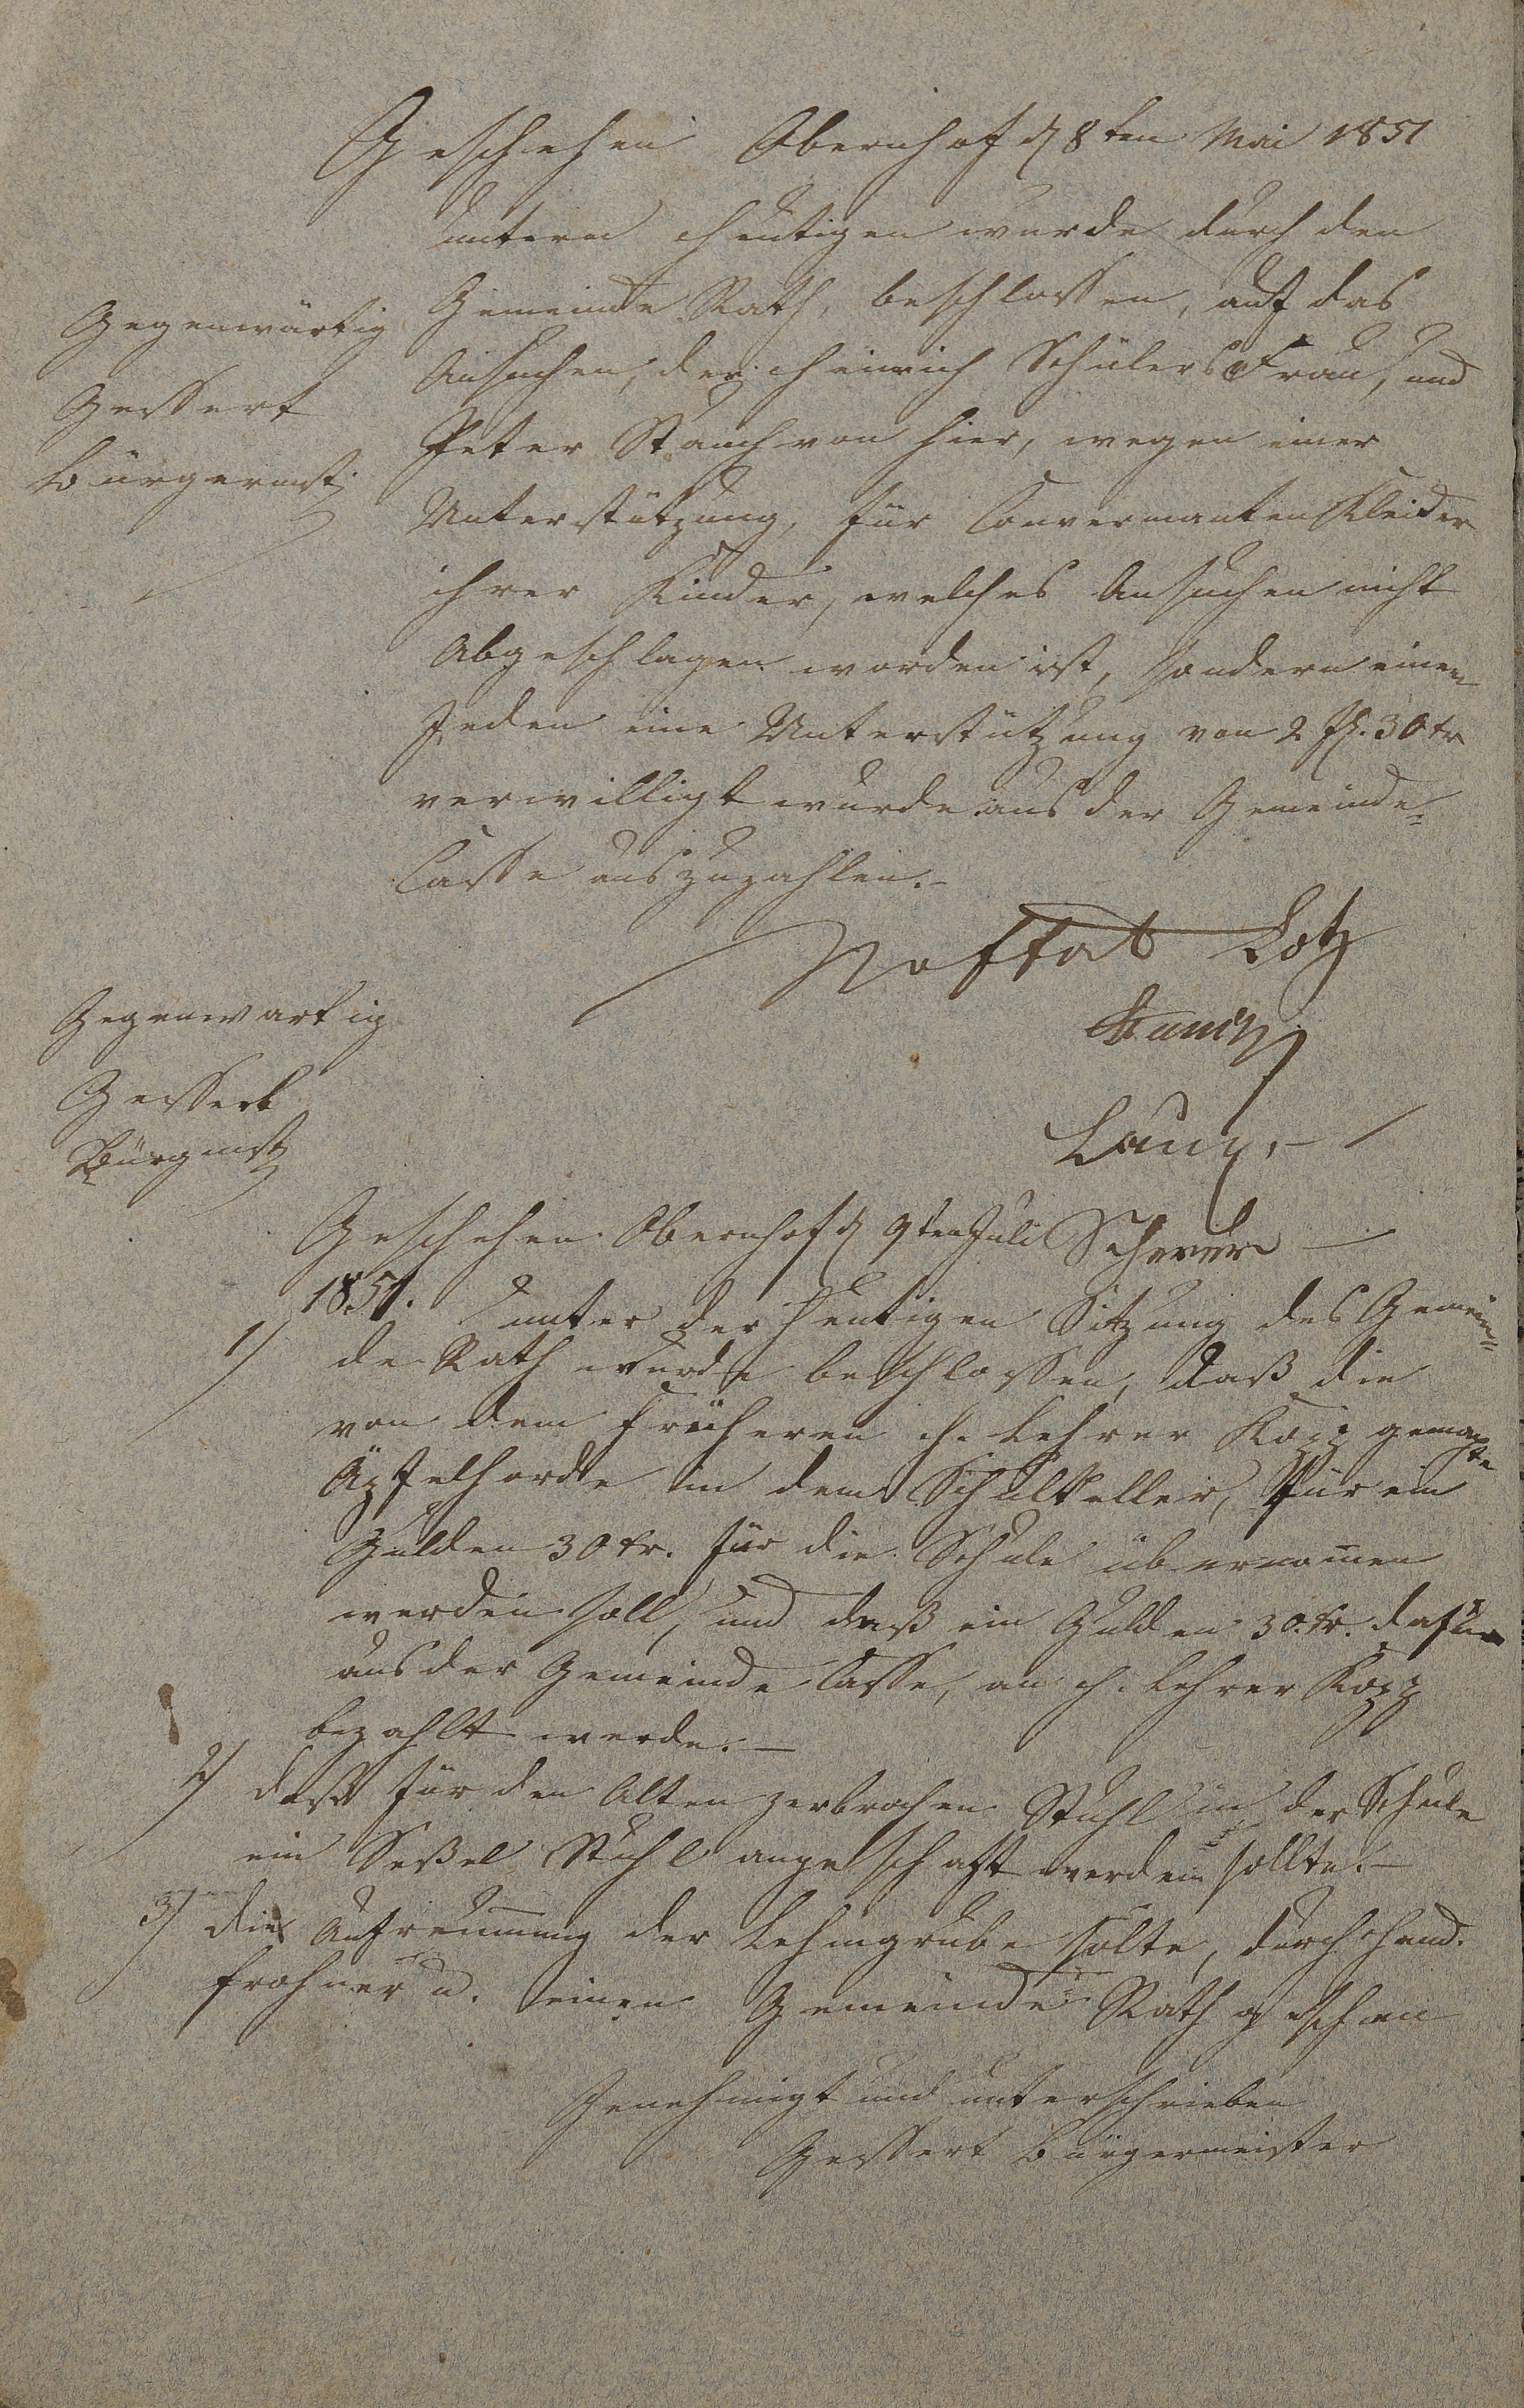 Geschehen Obernhof d 8ten Mai 1851
unterm heutigen wurde durch den
Gemeinde Rath, beschlossen, auf das
Ansuchen, der Heinrich Schülers Frau, und
Peter Stauch von hier, wegen einer
Unterstützung, für Convermanten Kleider
ihrer Kinder, welches Ansuchen nicht
Abgeschlagen worden ist, sondern einem
Jeden eine Unterstützung von 2 fl. 30 kr
verwilligt wurde aus der Gemeinde-
Casse auszuzahlen.-
Gegenwärtig
Gessert
Bürgermst.
Lotz
Laux.-
Scherer -
Gegenwartig
Gessert
Bürgmstr
Geschehen Obernhof d 9ten Juli
1851. unter der heutigen Sitzung des Gemein-
1/ de Rath wurde beschlossen, daß die
von dem früheren H. Lehrer Kopp gemachte
Äpfelhorde in dem Schulkeller, für ein
Gulden 30 kr. für die Schule übernomen
werden soll, und daß ein Gulden 30 kr. dafür
aus der Gemeinde Casse, an H. Lehrer Kopp
bezahlt werde.-
2/ daß für den Alten zerbrochen Stuhl in der Schule
ein Seßel Stuhl angeschaft werden sollte.-
3/ die Aufreumung der Lehmgrube solte, durch Hand-
frohner u. einen Gemeinde Rath geschen
Genehmigt und unterschrieben
Gessert Bürgermeister